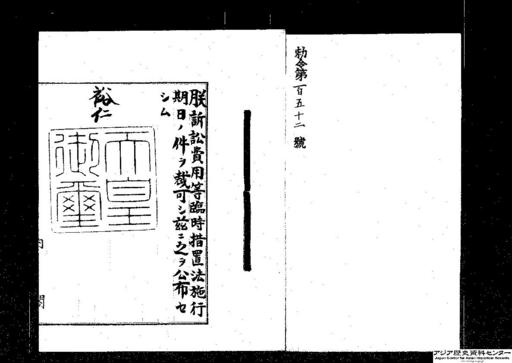 勅令第百五十二號
朕訴訟費用等臨時措置法施行
期日ノ件ヲ裁可シ茲ニ之ヲ公布セ
シム
裕仁
天皇
御璽
内
閣
アジア歴史資料センター
Japan Center for Asian Historical Records